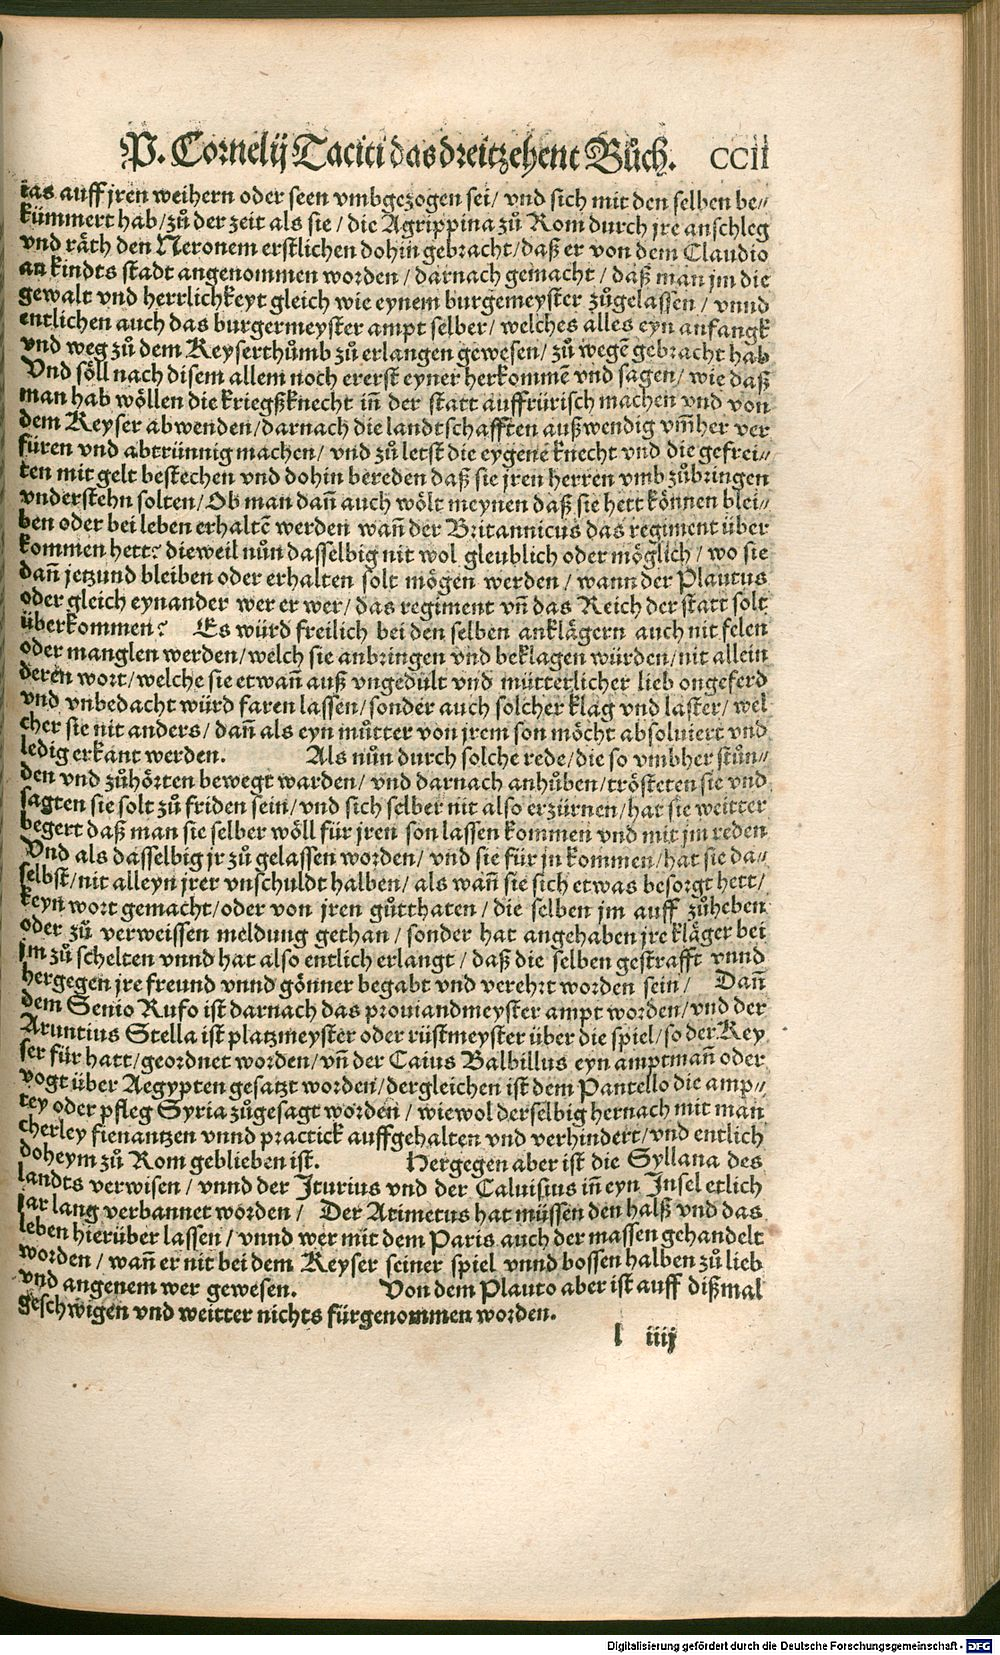 P. Cornelij Taciti das dreitzehent Bůch. CCII
tas auff jren weihern oder seen vmbgezogen sei/ vnd sich mit den selben be⸗
kümmert hab/ zů der zeit als sie/ die Agrippina zů Rom durch jre anschleg
vnd räth den Neronem erstlichen dohin gebracht/ daß er von dem Claudio
an kindts stadt angenommen worden/ darnach gemacht/ daß man jm die
gewalt vnd herrlichkeyt gleich wie eynem burgemeyster zůgelassen/ vnnd
entlichen auch das burgermeyster ampt selber/ welches alles eyn anfangk
vnd weg zů dem Keyserthůmb zů erlangen gewesen/ zů wegē gebracht hab
Vnd söll nach disem allem noch ererst eyner herkommē vnd sagen/ wie daß
man hab wöllen die kriegßknecht iñ der statt auffrürisch machen vnd von
dem Keyser abwenden/ darnach die landtschafften außwendig vm̃her ver
füren vnd abtrünnig machen/ vnd zů letst die eygene knecht vnd die gefrei⸗
ten mit gelt bestechen vnd dohin bereden daß sie jren herren vmb zůbringen
vnderstehn solten/ Ob man dañ auch wölt meynen daß sie hett können blei⸗
ben oder bei leben erhaltē werden wañ der Britannicus das regiment über
kommen hett? dieweil nůn dasselbig nit wol gleublich oder möglich/ wo sie
dañ jetzund bleiben oder erhalten solt mögen werden/ wann der Plautus
oder gleich eynander wer er wer/ das regiment vñ das Reich der statt solt
überkommen? Es würd freilich bei den selben anklägern auch nit felen
oder manglen werden/ welch sie anbringen vnd beklagen würden/ nit allein
deren wort/ welche sie etwañ auß vngedült vnd mütterlicher lieb ongeferd
vnd vnbedacht würd faren lassen/ sonder auch solcher klag vnd laster/ wel
cher sie nit anders/ dañ als eyn můtter von jrem son möcht absoluiert vnd
ledig erkant werden. Als nůn durch solche rede/ die so vmbher stůn⸗
den vnd zůhörten bewegt warden/ vnd darnach anhůben/ trösteten sie vnd
sagten sie solt zů friden sein/ vnd sich selber nit also erzürnen/ hat sie weitter
begert daß man sie selber wöll für jren son lassen kommen vnd mit jm reden
Vnd als dasselbig jr zů gelassen worden/ vnd sie für jn kommen/ hat sie da⸗
selbst/ nit alleyn jrer vnschuldt halben/ als wañ sie sich etwas besorgt hett/
keyn wort gemacht/ oder von jren gůtthaten/ die selben jm auff zůheben
oder zů verweissen meldung gethan/ sonder hat angehaben jre kläger bei
jm zů schelten vnnd hat also entlich erlangt/ daß die selben gestrafft vnnd
hergegen jre freund vnnd gönner begabt vnd verehrt worden sein/ Dañ
dem Senio Rufo ist darnach das prouiandmeyster ampt worden/ vnd der
Aruntius Stella ist platzmeyster oder rüstmeyster über die spiel/ so der Key
ser für hatt/ geordnet worden/ vñ der Caius Balbillus eyn amptmañ oder
vogt über Aegypten gesatzt worden/ dergleichen ist dem Pantello die amp⸗
tey oder pfleg Syria zůgesagt worden/ wiewol derselbig hernach mit man
cherley fienantzen vnnd practick auffgehalten vnd verhindert/ vnd entlich
doheym zů Rom geblieben ist. Hergegen aber ist die Syllana des
landts verwisen/ vnnd der Iturius vnd der Caluisius iñ eyn Insel etlich
jar lang verbannet worden/ Der Atimetus hat müssen den halß vnd das
leben hierüber lassen/ vnnd wer mit dem Paris auch der massen gehandelt
worden/ wañ er nit bei dem Keyser seiner spiel vnnd bossen halben zů lieb
vnd angenem wer gewesen. Von dem Plauto aber ist auff dißmal
geschwigen vnd weitter nichts fürgenommen worden.
l iiij
Digitalisierung gefördert durch die Deutsche Forschungsgemeinschaft - DFG